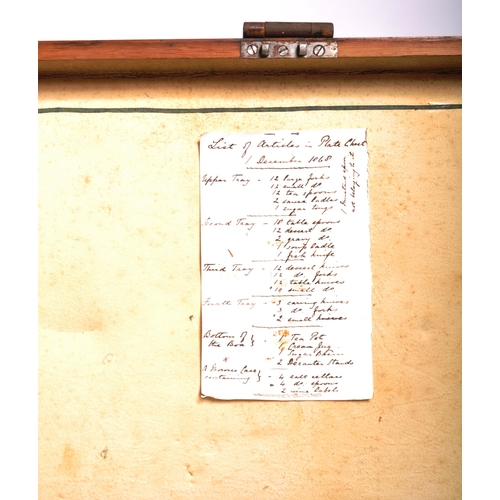 List of Articles in Plate Chest
1 December 1868
Upper Tray - 12 large forks
12 small do
12 tea spoons
2 sauce ladles
1 sugar tongs
Second Tray - 18 table spoons
12 dessert do
2 gravy do
1 soup ladle
1 fish knife
Third Tray - 12 dessert knives
12 do forks
12 table knives
10 small do
Fourth Tray - 3 carving knives
3 do forks
2 small knives
Bottom of the Box } 1 Tea Pot
1 Cream Jug
1 Sugar Basin
2 Decanter Stands
A Morocco Case containing } - 4 salt cellars
4 do spoons
2 wine labels
1 Mustard spoon
not belonging to it